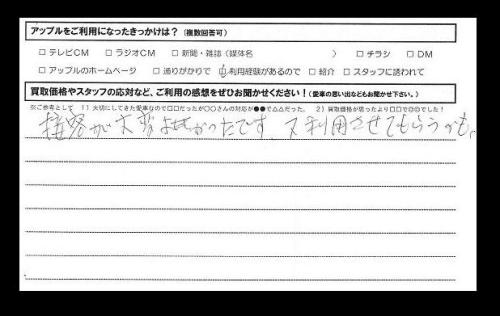 アップルをご利用になったきっかけは？（複数回答可）
□ テレビCM □ ラジオCM □ 新聞・雑誌（媒体名 ） □ チラシ □ DM
□ アップルのホームページ □ 通りがかりで □ 利用経験があるので □ 紹介 □ スタッフに誘われて
買取価格やスタッフの応対など、ご利用の感想をぜひお聞かせください！（愛車の思い出などもお聞かせ下さい。）
※ご参考として 1）大切にしてきた愛車なので□□だったが○○さんの対応が●●で△△だった。 2）買取価格が思ったより□□で◎◎でした！
接客が大変よかったです 又利用させてもらうかも。